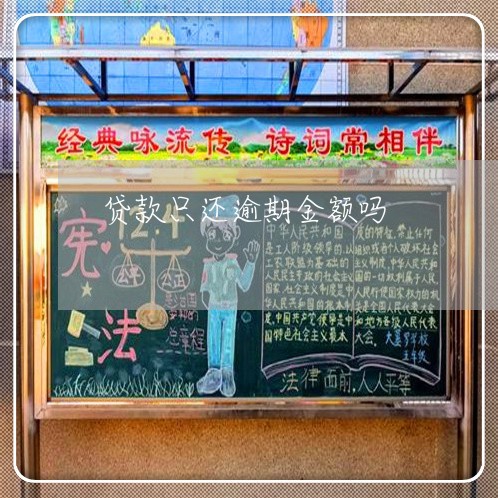 经典咏流传 诗词常相伴
贷款只还逾期金额吗
12.4
宪
法
公平
公正
总章程
中华人民共和国
是工人阶级领导的,以
工农联盟为基础的
人民民主专政的社会主义
国家,社会主义制度是中
华人民共和国的根本制
度,中国共产党领导是中
国特色社会主义最本
质的特征,禁止任何
组织或者个人破坏社会
主义制度,中华人民共和
国的一切权利属于人民,
人民行使国家权力的机
关是全国人民代表大会
和地方各级人民代表
大会。
五年级
法律面前,人人平等